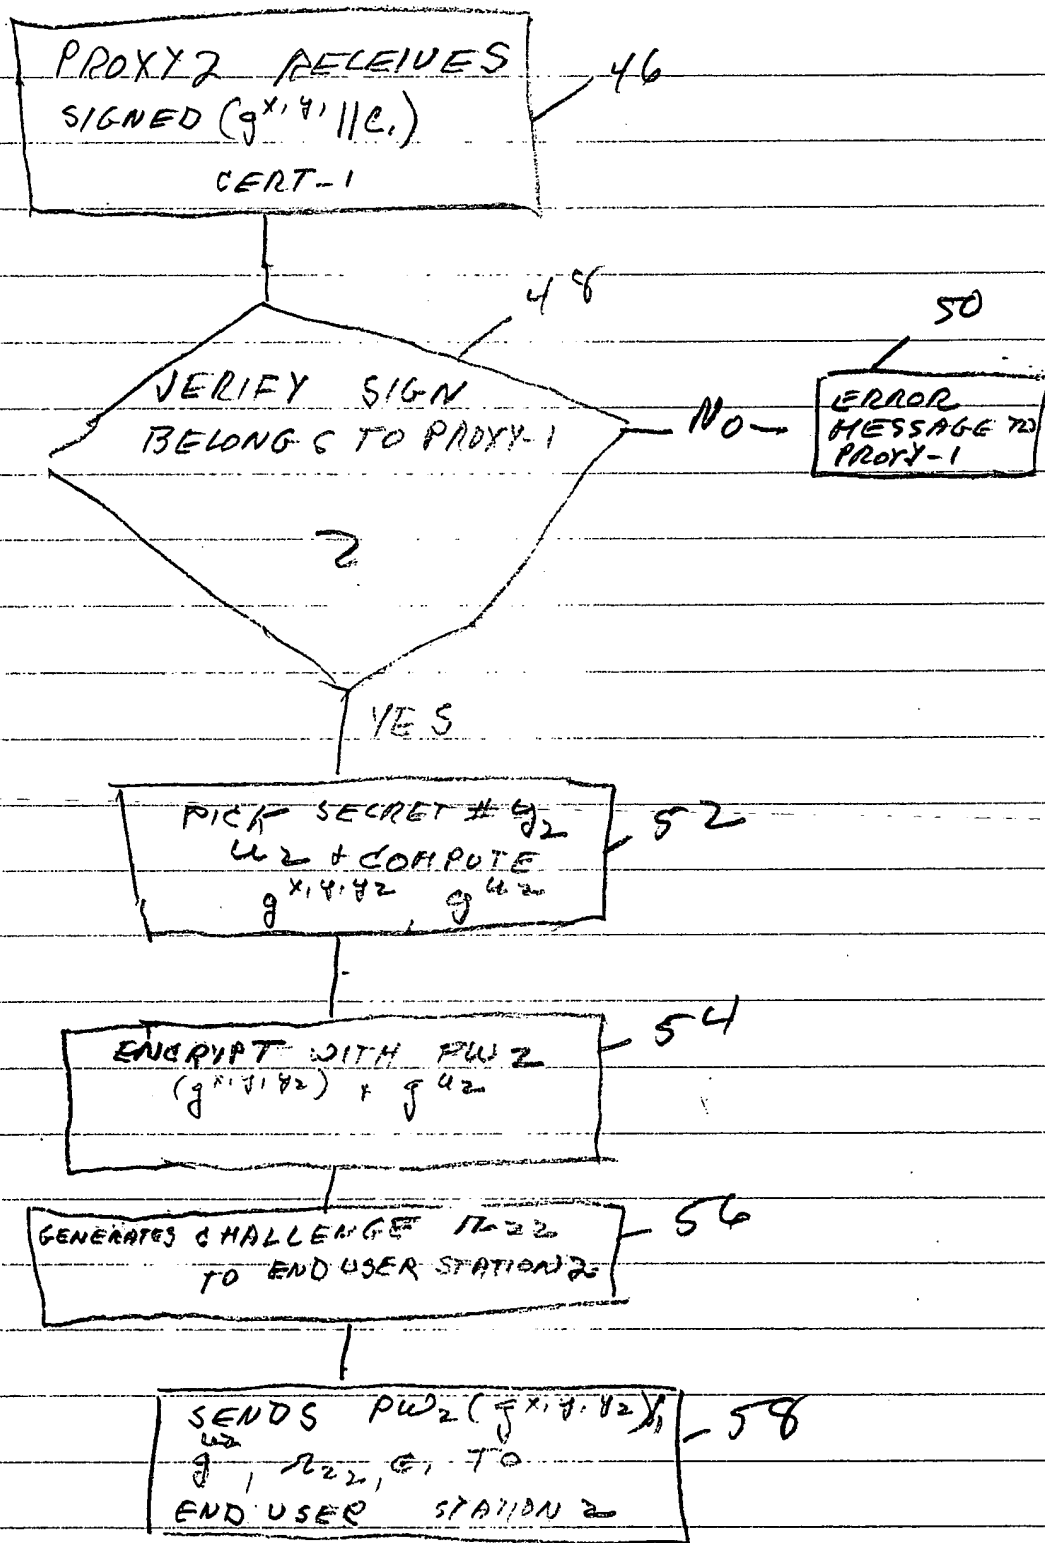 PROXY2 RECEIVES
46
SIGNED (g^x₁y₁ || C₁)
CERT-1
48
50
VERIFY SIGN
BELONGS TO PROXY-1
?
NO
ERROR
MESSAGE TO
PROXY-1
YES
PICK SECRET # y₂
52
u₂ + COMPUTE
g^x₁y₁y₂, g^u₂
54
ENCRYPT WITH PW2
(g^x₁y₁y₂) + g^u₂
56
GENERATES CHALLENGE r₂₂
TO END USER STATION 2
SENDS PW₂(g^x₁y₁y₂),
58
g^u₂, r₂₂, C₁ TO
END USER STATION 2